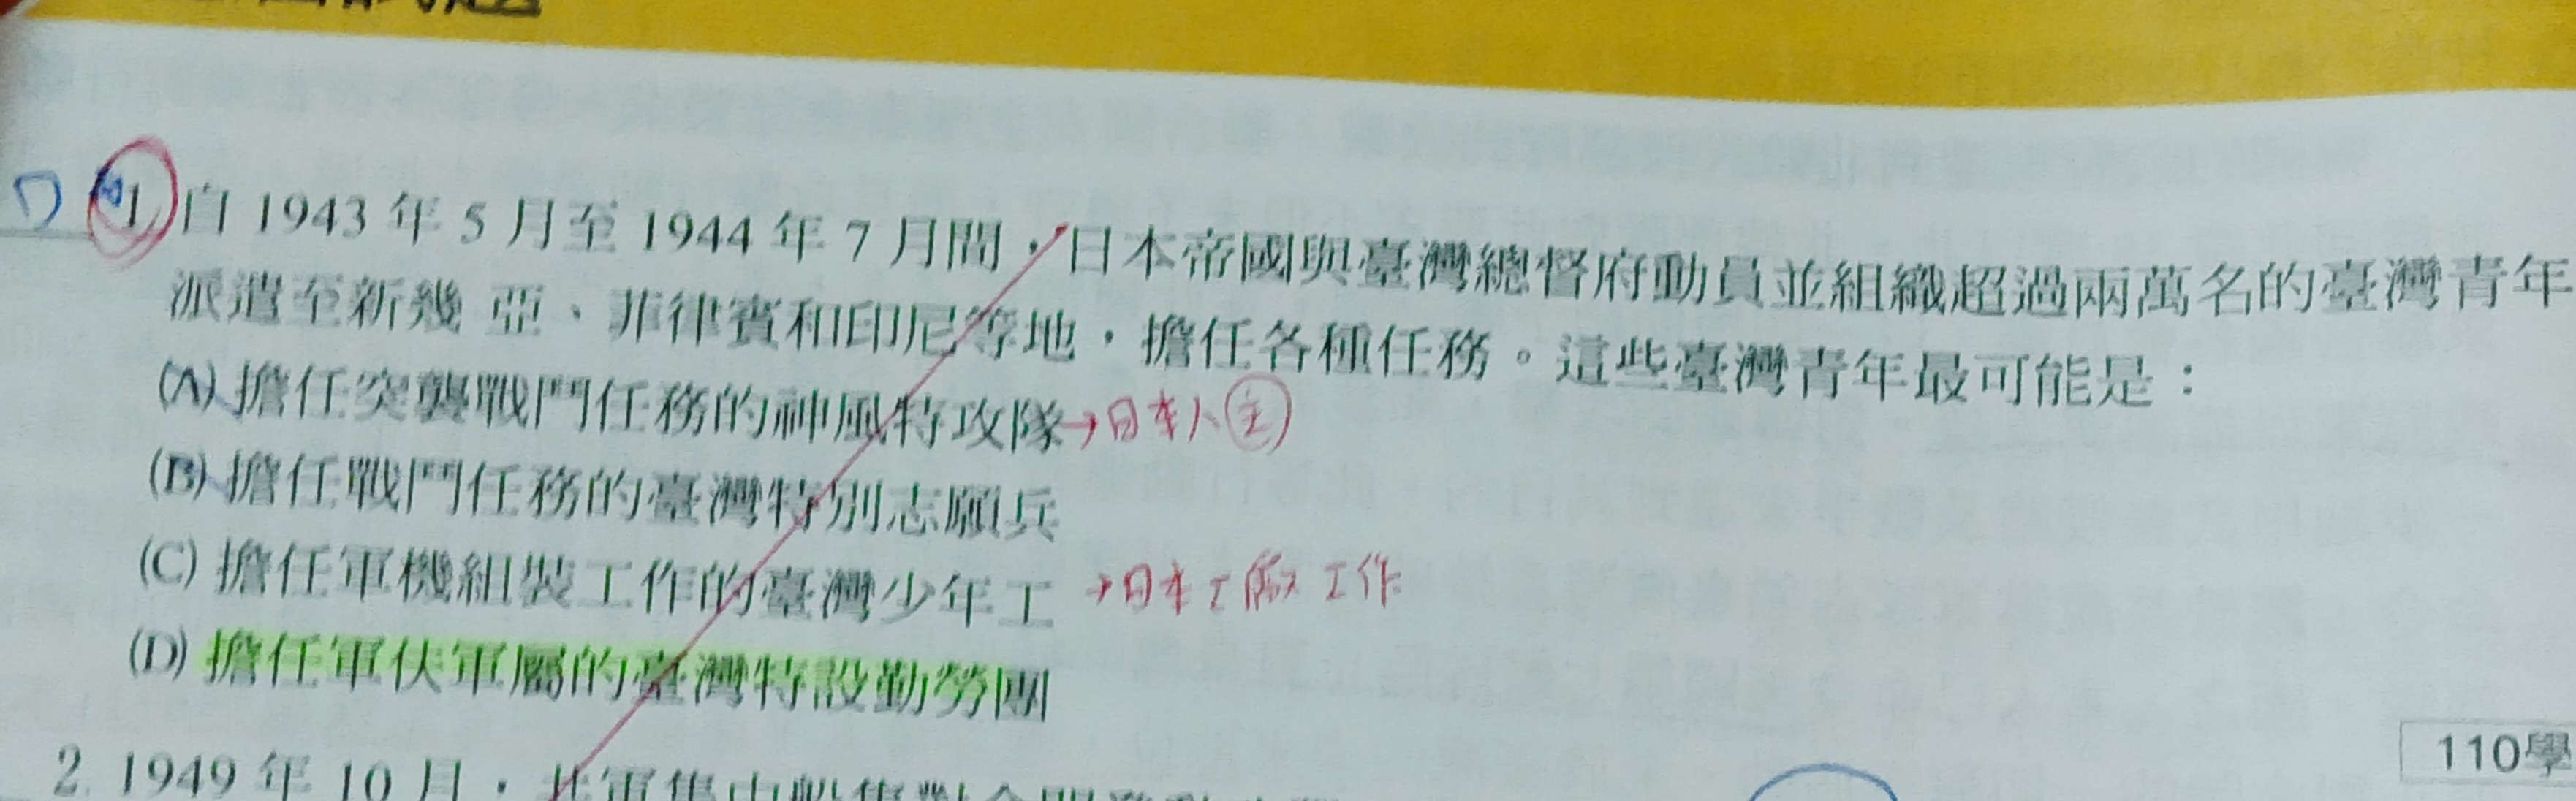 D 1. 自 1943 年 5 月至 1944 年 7 月間，日本帝國與臺灣總督府動員並組織超過兩萬名的臺灣青年
派遣至新幾 亞、菲律賓和印尼等地，擔任各種任務。這些臺灣青年最可能是：
(A) 擔任突襲戰鬥任務的神風特攻隊→日本人主
(B) 擔任戰鬥任務的臺灣特別志願兵
(C) 擔任軍機組裝工作的臺灣少年工 →日本工廠工作
(D) 擔任軍伕軍屬的臺灣特設勤勞團
110學
2. 1949 年 10 月，共軍集中船隻對金門發動